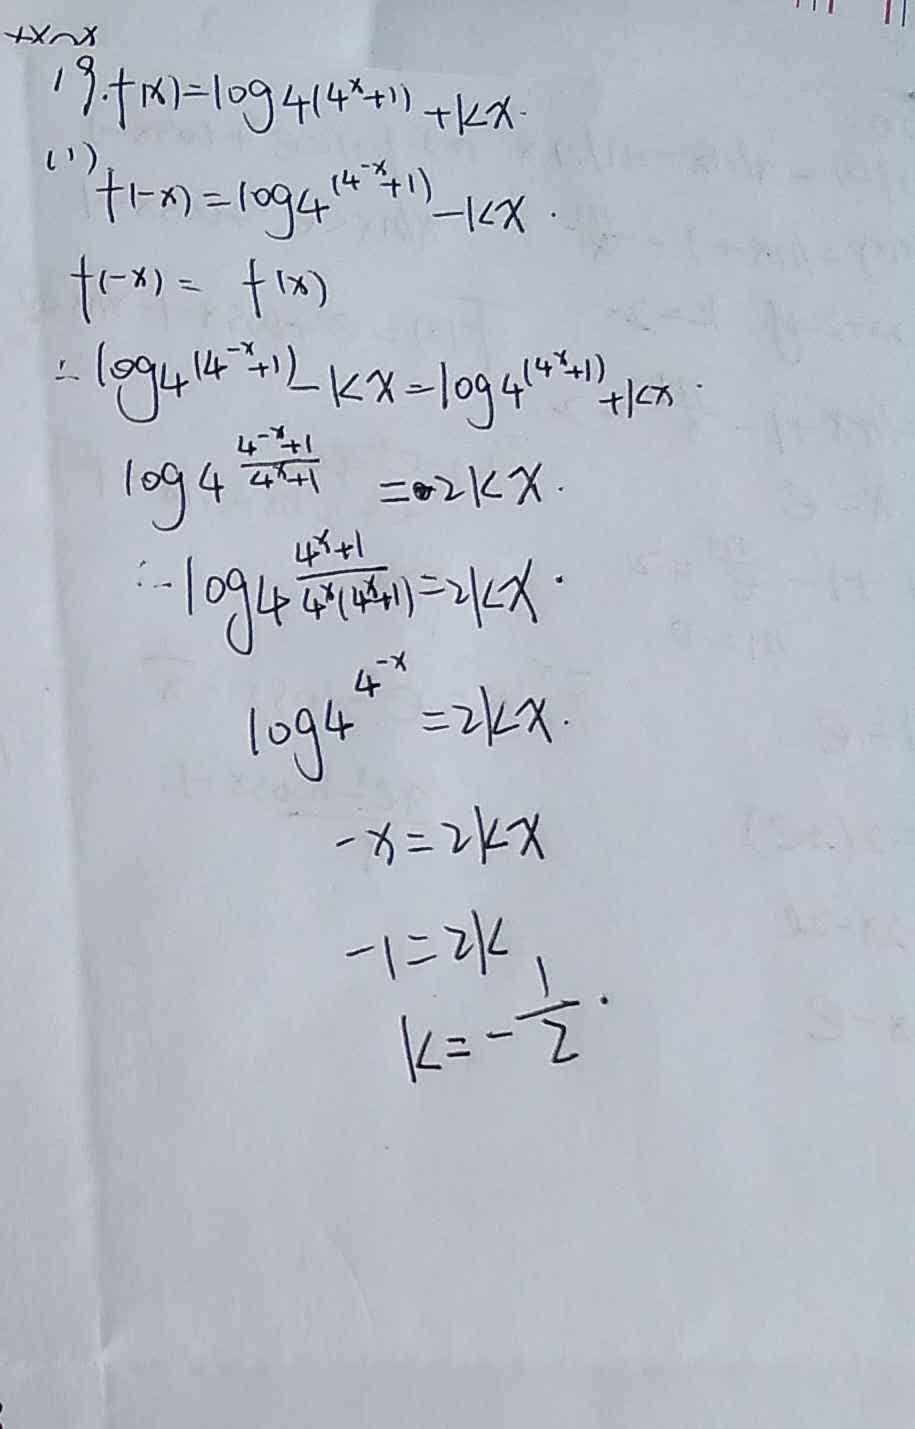 19. f(x)=log4(4^x+1)+kx.
(1)
f(-x)=log4(4^-x+1)-kx.
f(-x)= f(x)
∴log4(4^-x+1)-kx=log4(4^x+1)+kx.
log4 (4^-x+1)/(4^x+1) =2kx.
∴log4 (4^x+1)/(4^x(4^x+1))=2kx.
log4 4^-x =2kx.
-x=2kx
-1=2k
k=-1/2.